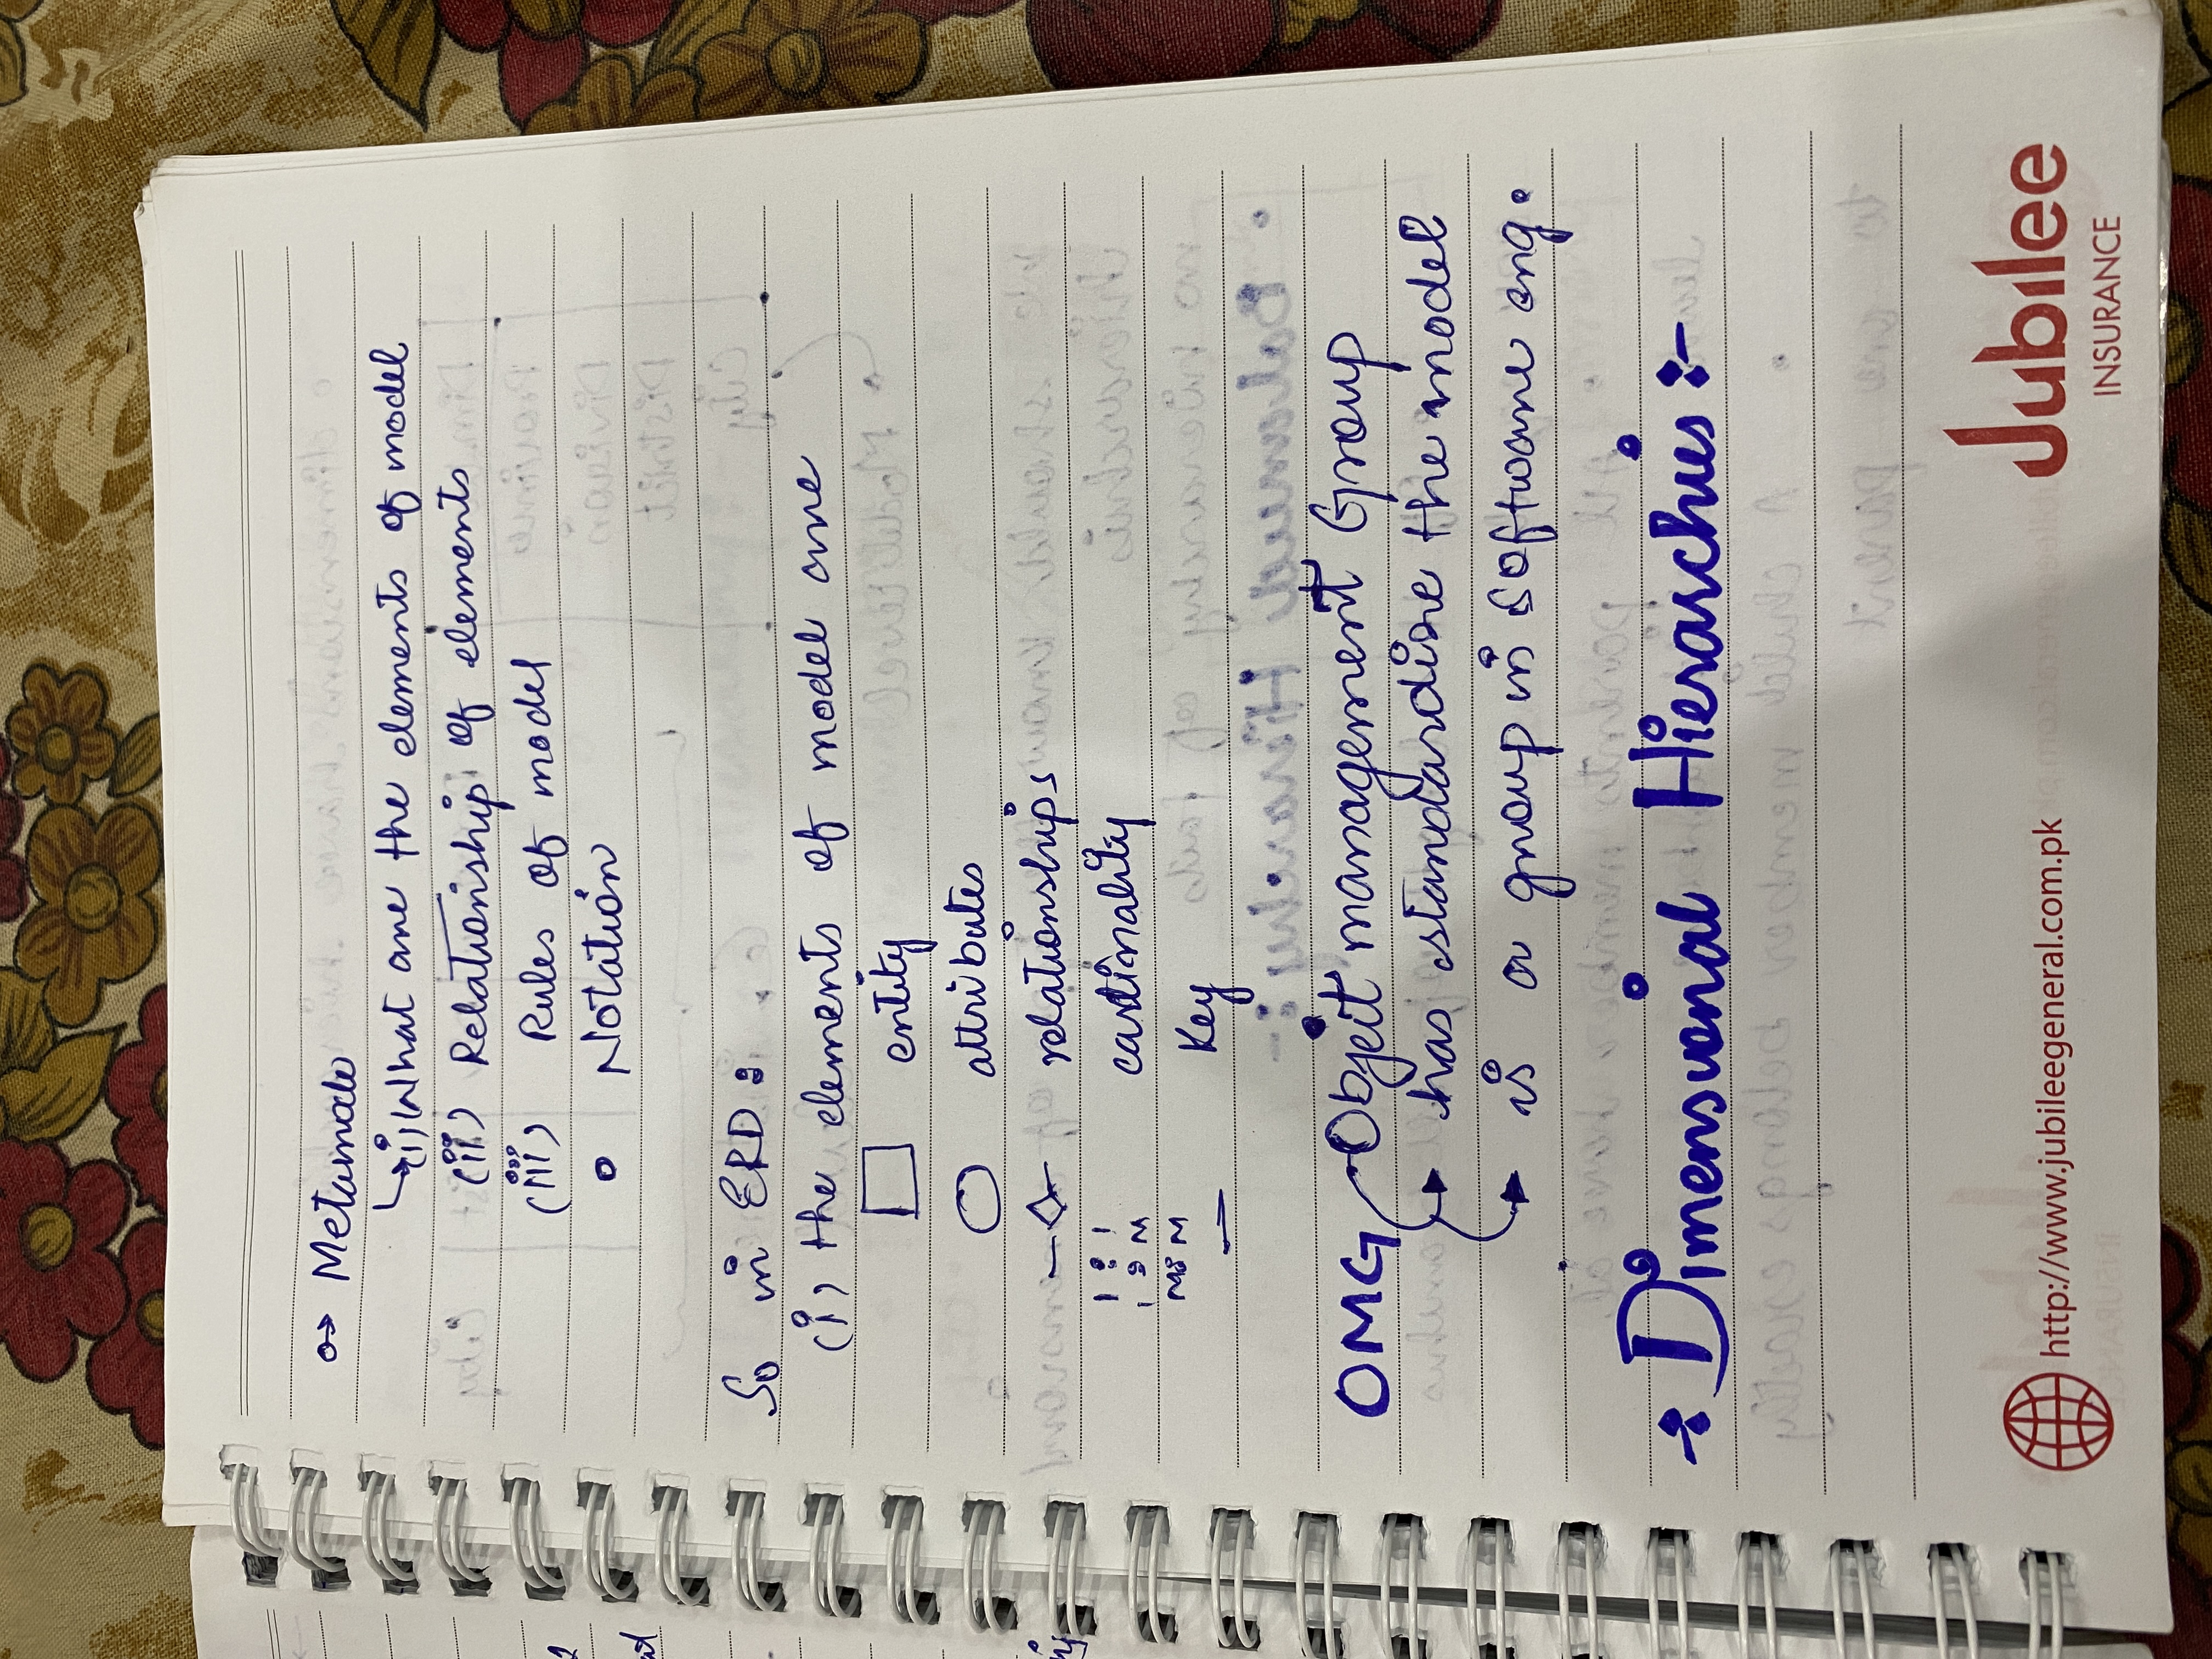 Metamode
(i) What are the elements of model
(ii) Relationship of elements
(iii) Rules of model
Notation
So in ERD :
(i) the elements of model are
entity
attributes
relationships
1 : 1
1 : M
cardinality
M : M
Key
OMG Object management Group
has standardize the model
is a group in Software eng.
-: Dimensional Hierarchies :-
http://www.jubileegeneral.com.pk
Jubilee
INSURANCE